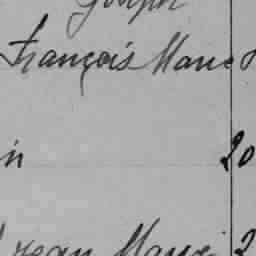 Joseph
François Marie
in 20
Jean Marie 2